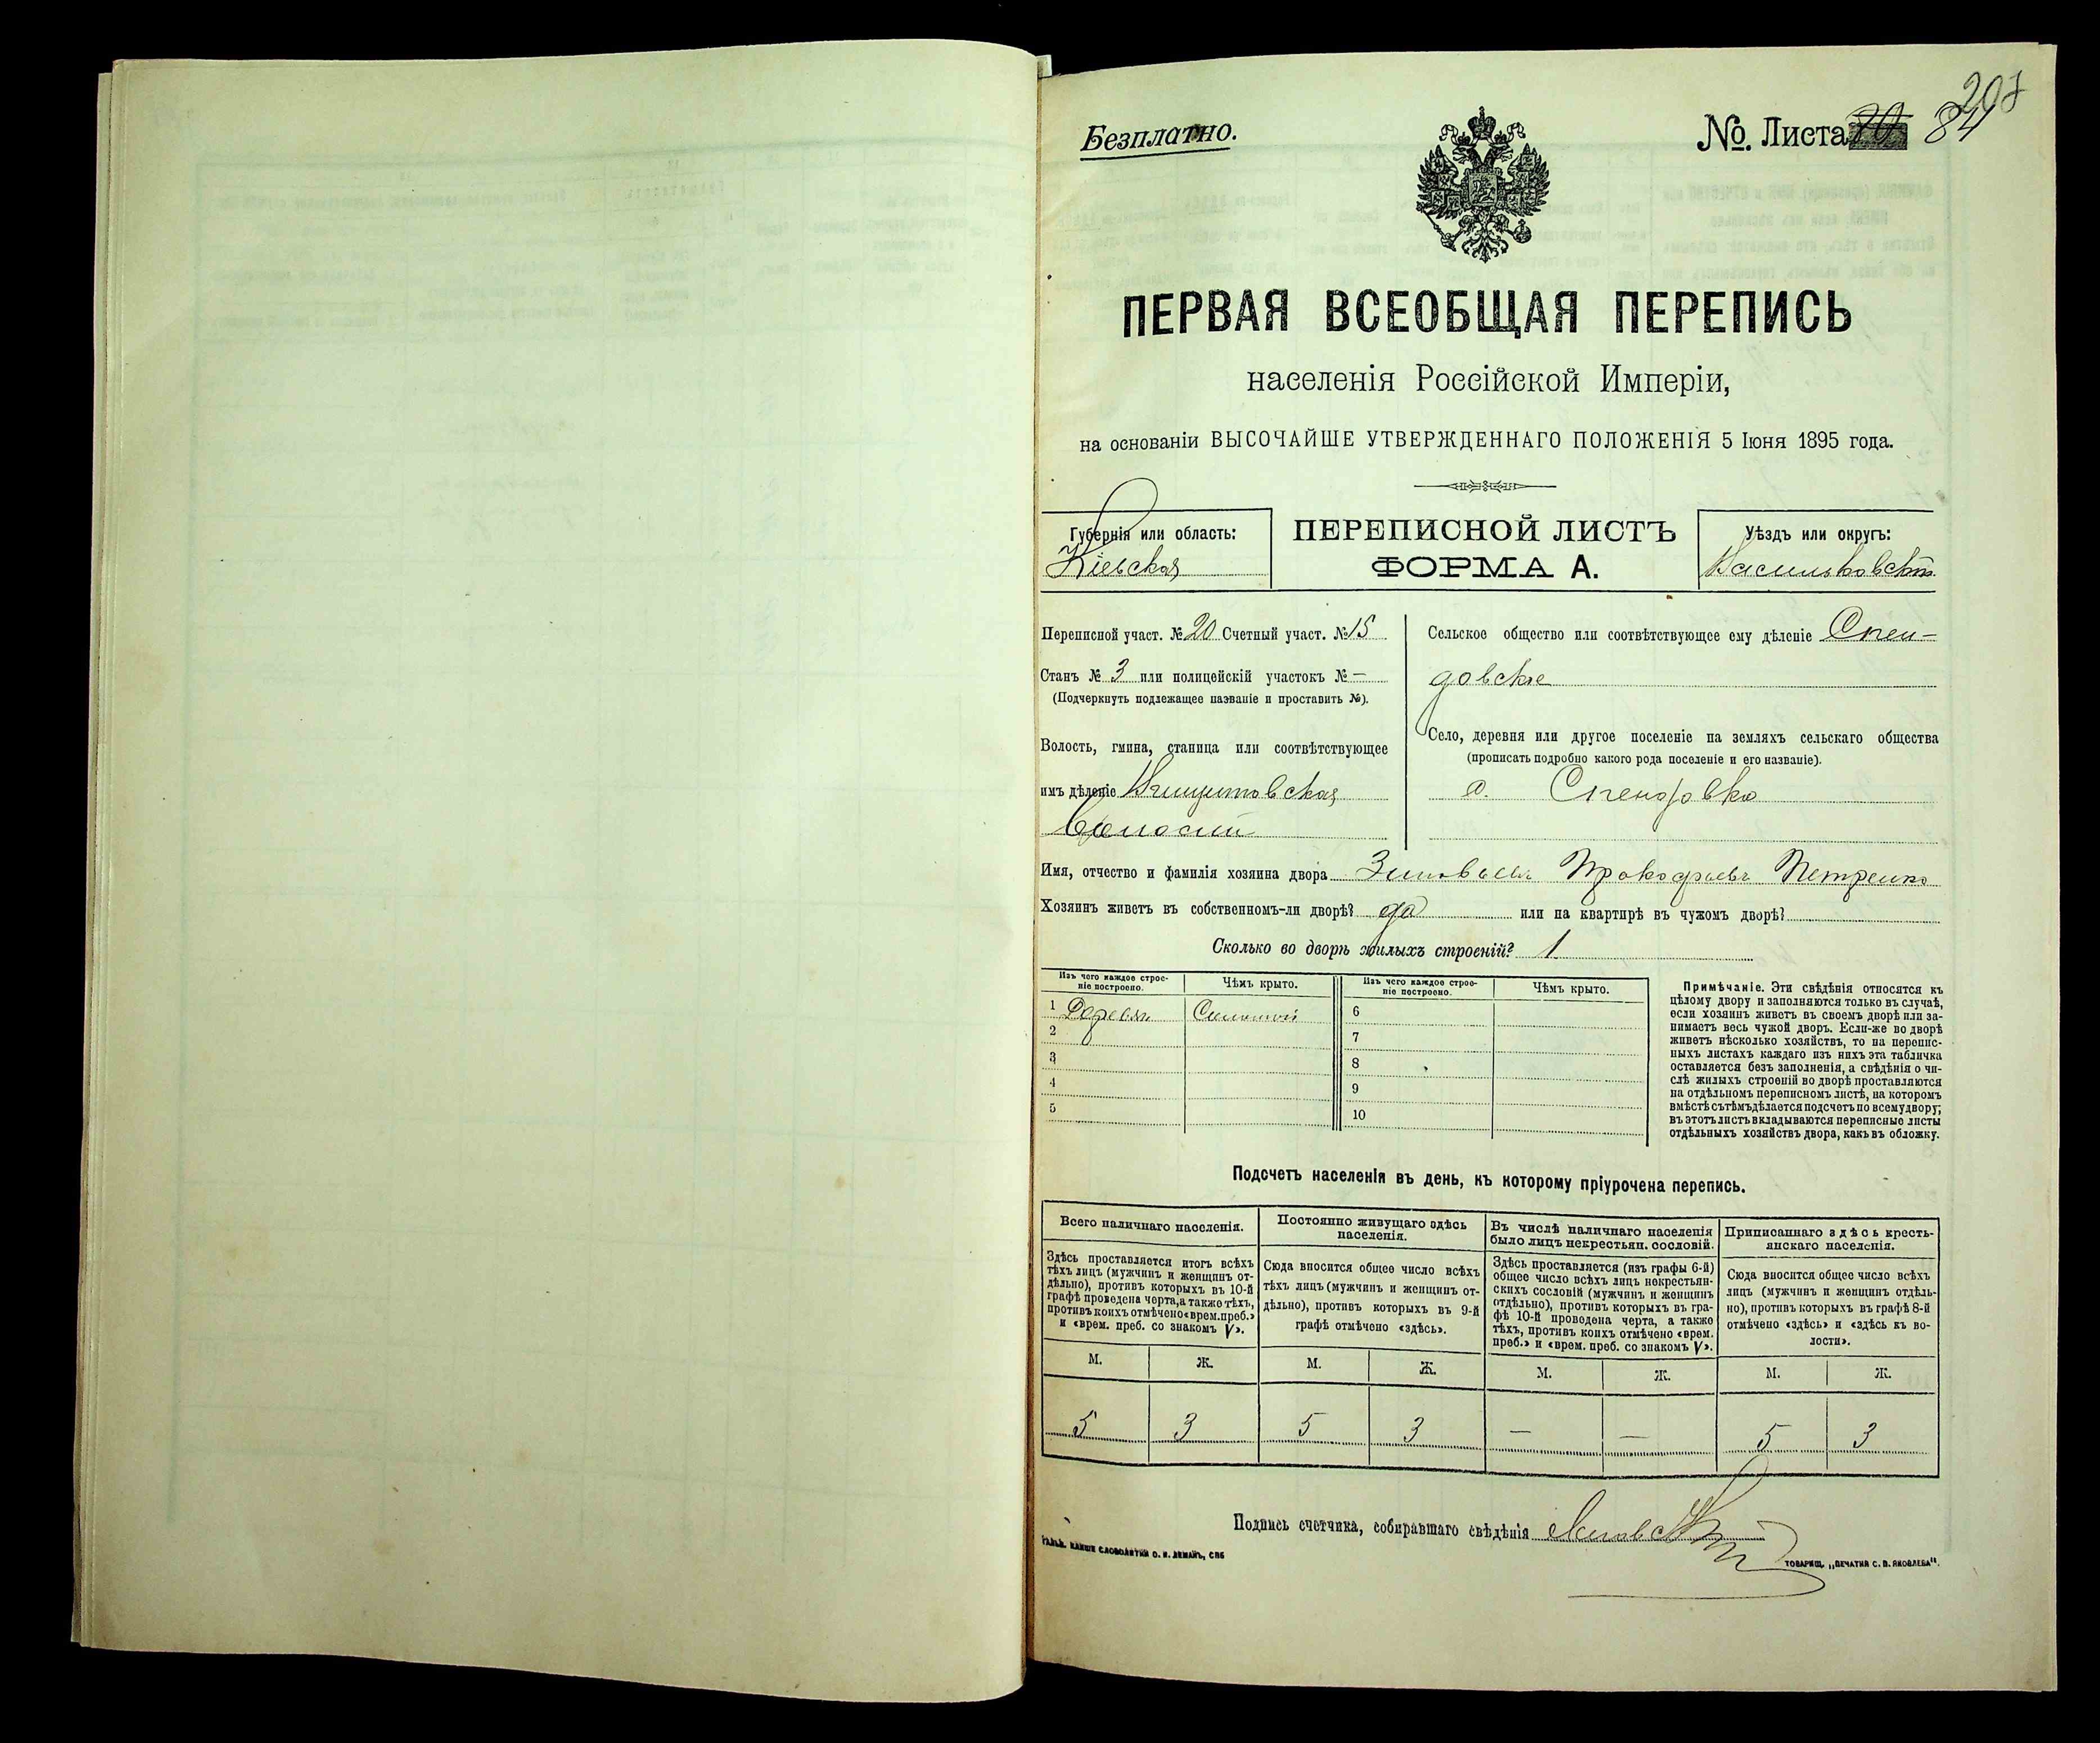 207
Безплатно.
№. Листа 84
ПЕРВАЯ ВСЕОБЩАЯ ПЕРЕПИСЬ
населенія Россійской Имперіи,
на основаніи ВЫСОЧАЙШЕ УТВЕРЖДЕННАГО ПОЛОЖЕНІЯ 5 Іюня 1895 года.
Губернія или область:
Кіевская
ПЕРЕПИСНОЙ ЛИСТЪ
ФОРМА А.
Уѣздъ или округъ:
Васильковскій
Переписной участ. № 20 Счетный участ. № 15
Станъ № 3 или полицейскій участокъ № —
(Подчеркнуть подлежащее названіе и проставить №).
Волость, гмина, станица или соотвѣтствующее
имъ дѣленіе
Волости
Сельское общество или соотвѣтствующее ему дѣленіе Спен-
довское
Село, деревня или другое поселеніе на земляхъ сельскаго общества
(прописать подробно какого рода поселеніе и его названіе).
д. Спендовка
Имя, отчество и фамилія хозяина двора Прокофьевъ Петренко
Хозяинъ живетъ въ собственномъ-ли дворѣ? да или на квартирѣ въ чужомъ дворѣ?
Сколько во дворѣ жилыхъ строеній? 1
Изъ чего каждое строе-
ніе построено.
Чѣмъ крыто.
Изъ чего каждое строе-
ніе построено.
Чѣмъ крыто.
1 Дерев. Соломой 6
2 7
3 8
4 9
5 10
Примѣчаніе. Эти свѣдѣнія относятся къ
цѣлому двору и заполняются только въ случаѣ,
если хозяинъ живетъ въ своемъ дворѣ или за-
нимаетъ весь чужой дворъ. Если-же во дворѣ
живетъ нѣсколько хозяйствъ, то на перепис-
ныхъ листахъ каждаго изъ нихъ эта табличка
оставляется безъ заполненія, а свѣдѣнія о чи-
слѣ жилыхъ строеній во дворѣ проставляются
на отдѣльномъ переписномъ листѣ, на которомъ
вмѣстѣ съ тѣмъ дѣлается подсчетъ по всему двору;
въ этотъ листъ вкладываются переписные листы
отдѣльныхъ хозяйствъ двора, какъ въ обложку.
Подсчетъ населенія въ день, къ которому пріурочена перепись.
Всего наличнаго населенія.
Здѣсь проставляется итогъ всѣхъ
тѣхъ лицъ (мужчинъ и женщинъ от-
дѣльно), противъ которыхъ въ 10-й
графѣ проведена черта, а также тѣхъ,
противъ коихъ отмѣчено «врем. преб.»
и «врем. преб. со знакомъ V».
Постоянно живущаго здѣсь
населенія.
Сюда вносится общее число всѣхъ
тѣхъ лицъ (мужчинъ и женщинъ от-
дѣльно), противъ которыхъ въ 9-й
графѣ отмѣчено «здѣсь».
Въ числѣ наличнаго населенія
было лицъ некрестьян. сословій.
Здѣсь проставляется (изъ графы 6-й)
общее число всѣхъ лицъ некрестьян-
скихъ сословій (мужчинъ и женщинъ
отдѣльно), противъ которыхъ въ гра-
фѣ 10-й проведена черта, а также
тѣхъ, противъ коихъ отмѣчено «врем.
преб.» и «врем. преб. со знакомъ V».
Приписаннаго здѣсь кресть-
янскаго населенія.
Сюда вносится общее число всѣхъ
лицъ (мужчинъ и женщинъ отдѣль-
но), противъ которыхъ въ графѣ 8-й
отмѣчено «здѣсь» и «здѣсь къ во-
лости».
М. Ж. М. Ж. М. Ж. М. Ж.
5 3 5 3 — — 5 3
Подпись счетчика, собиравшаго свѣдѣнія
СЛОВОЛИТНИ О. И. ЛЕМАНЪ, СПБ
ТОВАРИЩ. „ПЕЧАТНЯ С. П. ЯКОВЛЕВА".